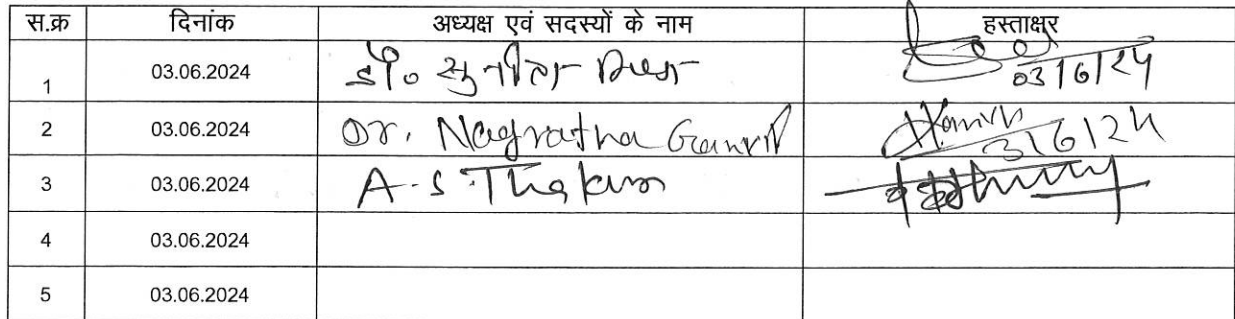 स.क्र दिनांक अध्यक्ष एवं सदस्यों के नाम हस्ताक्षर
1 03.06.2024 डॉ० सुनीता मिश्रा 03/6/24
2 03.06.2024 Dr. Nagratna Ganvir 3/6/24
3 03.06.2024 A. S. Thakur
4 03.06.2024
5 03.06.2024